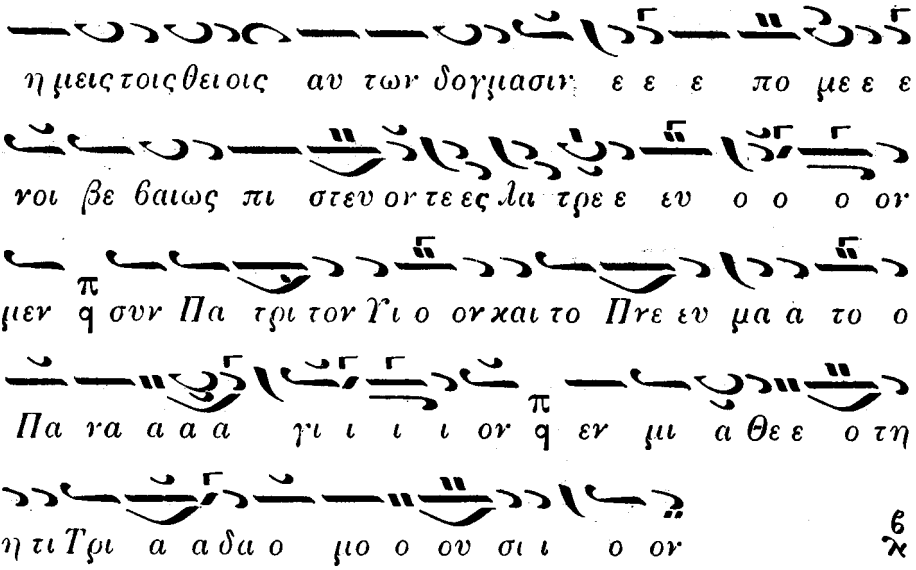 η μεις τοις θει οις αυ των δογμασιν ε ε ε πο με ε ε
νοι βε βαιως πι στευ ον τε ες λα τρε ε ευ ο ο ο ον
μεν π q συν Πα τρι τον Υι ο ον και το Πνε ευ μα α το ο
Πα να α α α γι ι ι ι ον π q εν μι α Θε ε ο τη
η τι Τρι α α δα ο μο ο ου σι ι ο ον